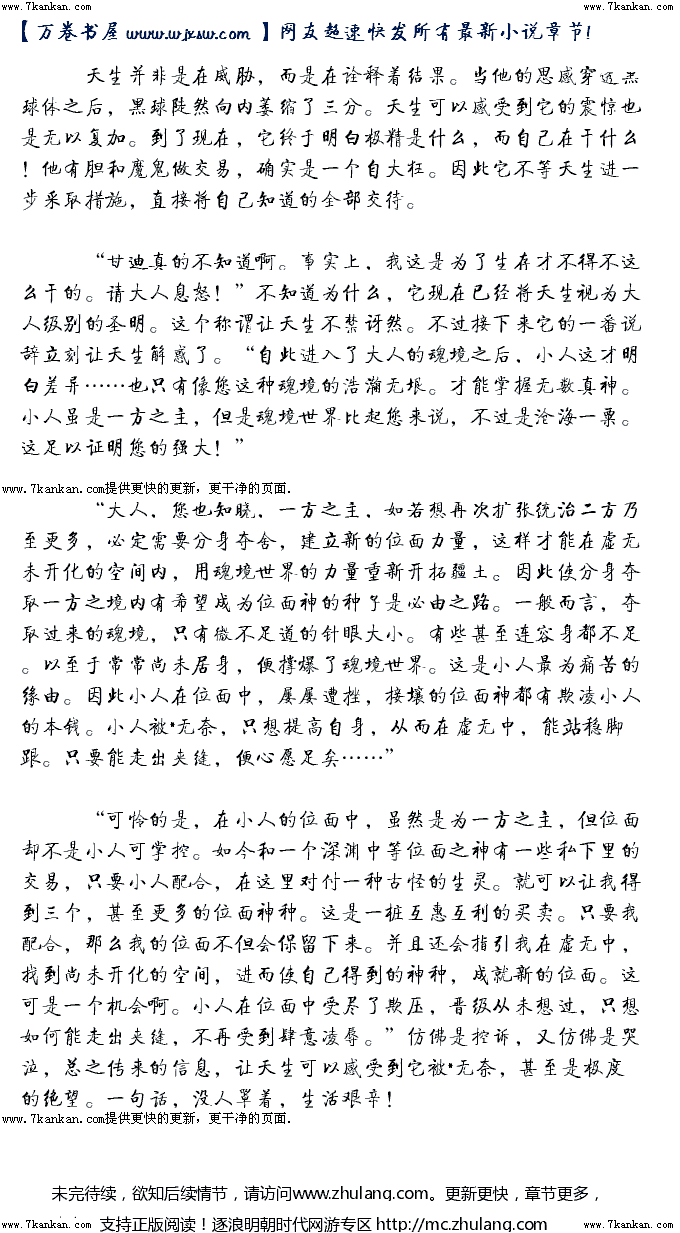 www.7kankan.com www.7kankan.com
【万卷书屋 www.wjxsw.com 】网友超速快发所有最新小说章节!
天生并非是在威胁，而是在诠释着结果。当他的思感穿过黑
球体之后，黑球陡然向内萎缩了三分。天生可以感受到它的震惊也
是无以复加。到了现在，它终于明白极精是什么，而自己在干什么
！他有胆和魔鬼做交易，确实是一个自大狂。因此它不等天生进一
步采取措施，直接将自己知道的全部交待。
“甘迪真的不知道啊。事实上，我这是为了生存才不得不这
么干的。请大人息怒！”不知道为什么，它现在已经将天生视为大
人级别的圣明。这个称谓让天生不禁讶然。不过接下来它的一番说
辞立刻让天生解惑了。“自此进入了大人的魂境之后，小人这才明
白差异……也只有像您这种魂境的浩瀚无垠。才能掌握无数真神。
小人虽是一方之主，但是魂境世界比起您来说，不过是沧海一粟。
这足以证明您的强大！”
www.7kankan.com提供更快的更新，更干净的页面.
“大人，您也知晓，一方之主，如若想再次扩张统治二方乃
至更多，必定需要分身夺舍，建立新的位面力量，这样才能在虚无
未开化的空间内，用魂境世界的力量重新开拓疆土。因此使分身夺
取一方之境内有希望成为位面神的种子是必由之路。一般而言，夺
取过来的魂境，只有微不足道的针眼大小。有些甚至连容身都不足
。以至于常常尚未居身，便撑爆了魂境世界。这是小人最为痛苦的
缘由。因此小人在位面中，屡屡遭挫，接壤的位面神都有欺凌小人
的本钱。小人被*无奈，只想提高自身，从而在虚无中，能站稳脚
跟。只要能走出夹缝，便心愿足矣……”
“可怜的是，在小人的位面中，虽然是为一方之主，但位面
却不是小人可掌控。如今和一个深渊中等位面之神有一些私下里的
交易，只要小人配合，在这里对付一种古怪的生灵。就可以让我得
到三个，甚至更多的位面神种。这是一桩互惠互利的买卖。只要我
配合，那么我的位面不但会保留下来。并且还会指引我在虚无中，
找到尚未开化的空间，进而使自己得到的神种，成就新的位面。这
可是一个机会啊。小人在位面中受尽了欺压，晋级从未想过，只想
如何能走出夹缝，不再受到肆意凌辱。”仿佛是控诉，又仿佛是哭
泣，总之传来的信息，让天生可以感受到它被*无奈，甚至是极度
的绝望。一句话，没人罩着，生活艰辛！
www.7kankan.com提供更快的更新，更干净的页面.
未完待续，欲知后续情节，请访问www.zhulang.com。更新更快，章节更多，
支持正版阅读！逐浪明朝时代网游专区 http://mc.zhulang.com
www.7kankan.com www.7kankan.com